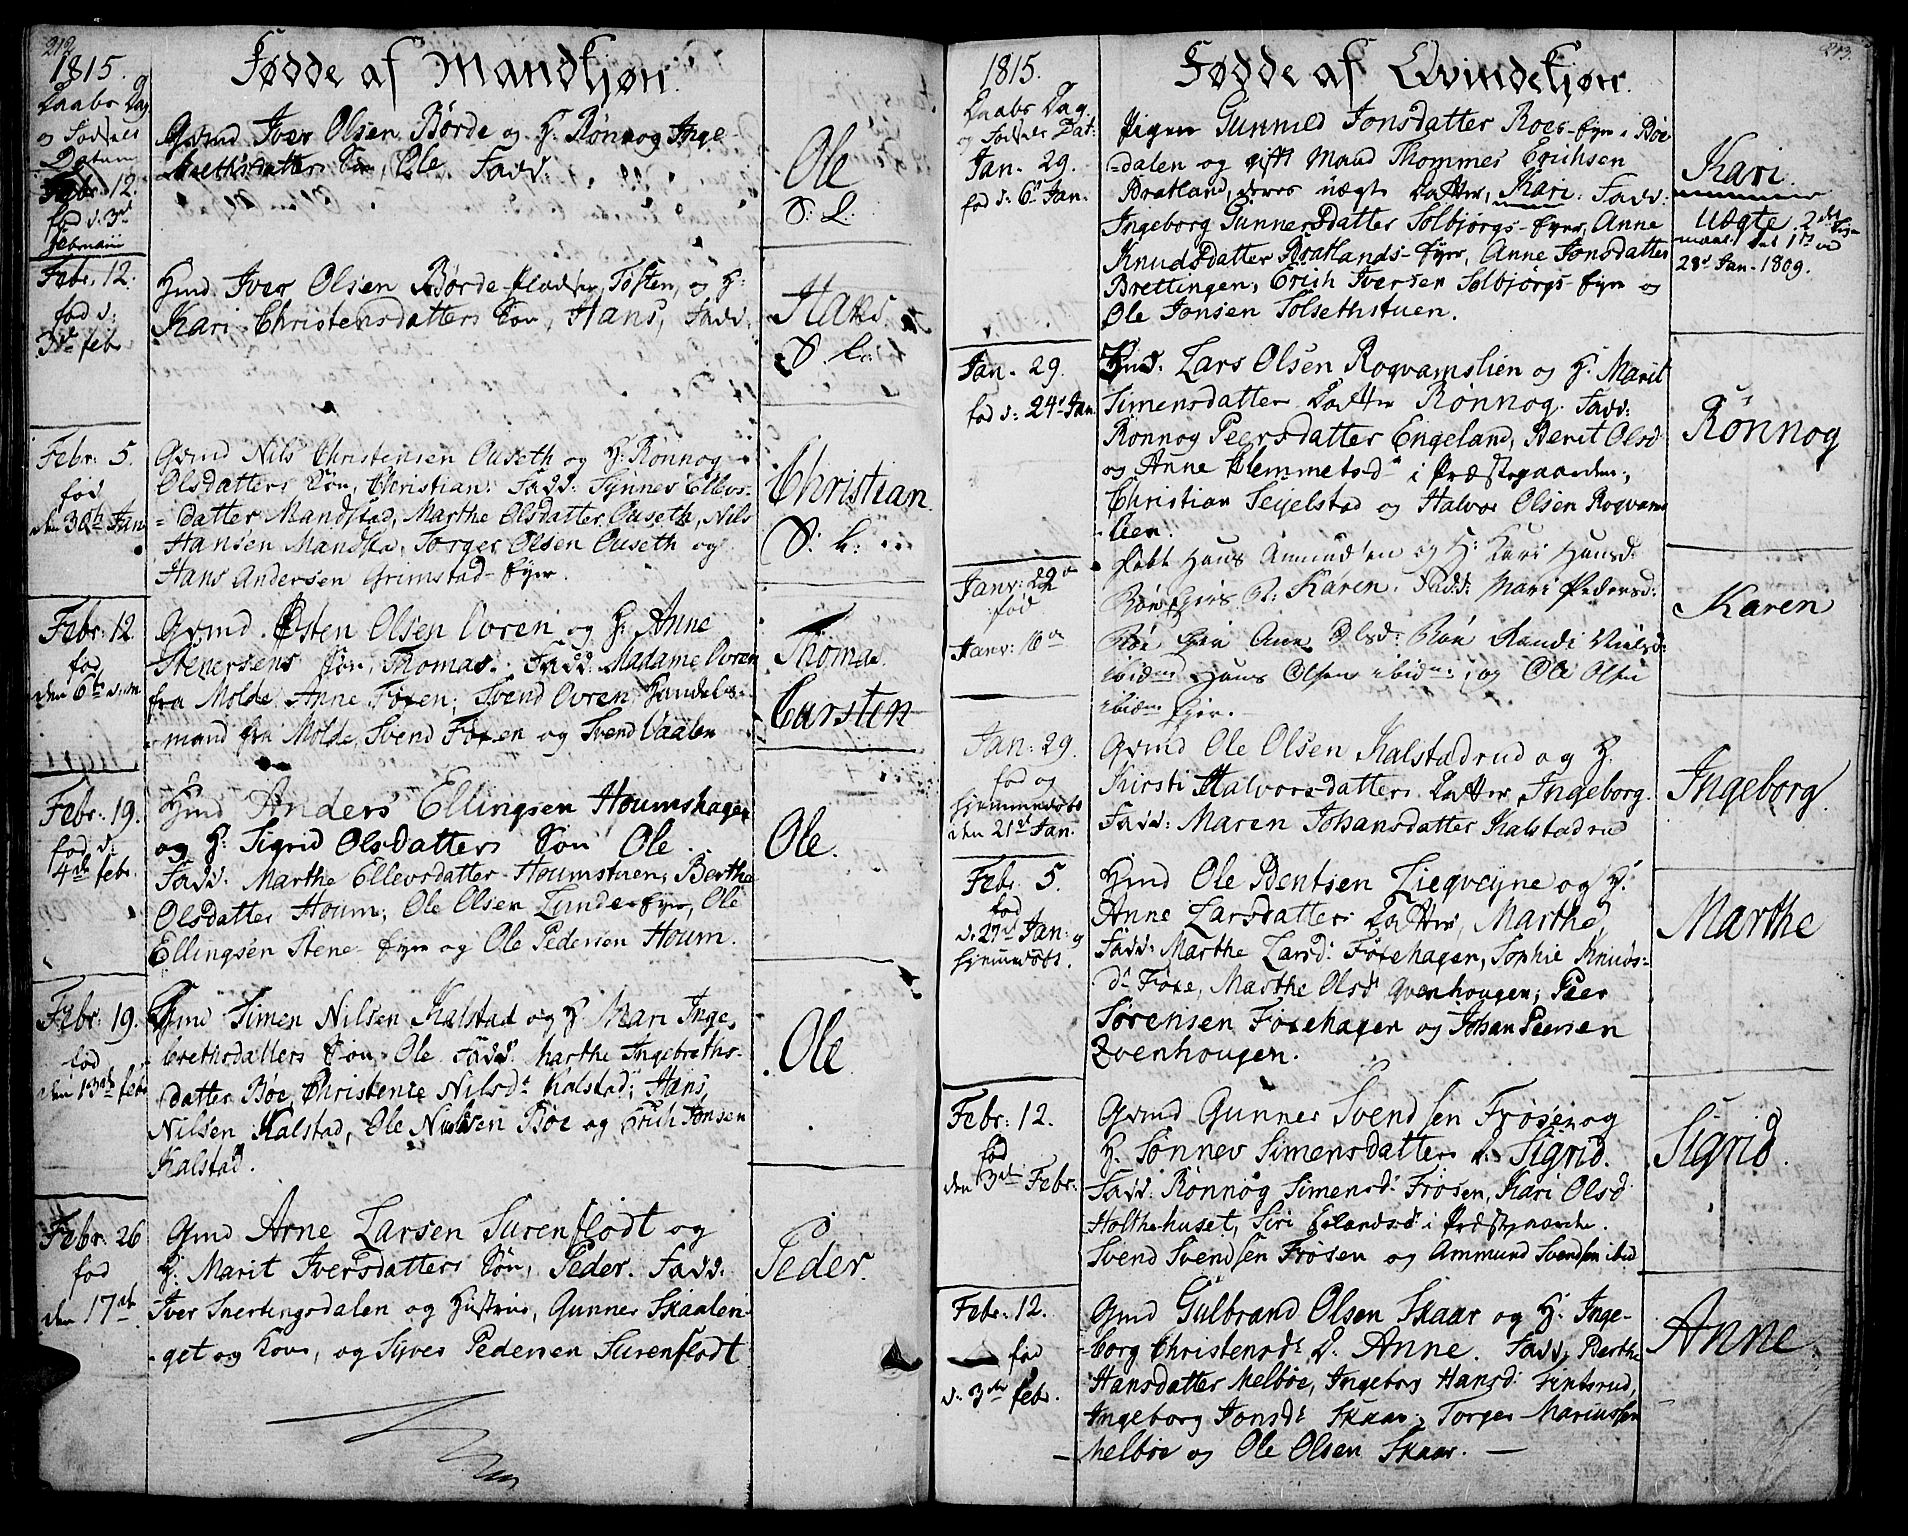 212
1815.
Daabs Dag
og Fødsels
Datum
Febr. 12.
fød d. 3de
Februarii
Fødde af Mandkjøn.
Gvmd Iver Olsen Børde og H: Rønnog Inge-
brethsdatters Søn, Ole. Fadd:
Ole
S: L:
Febr. 12.
fød d:
3de feb
Hmd. Iver Olsen Børde-pladsen, Tosten, og H:
Kari Christensdatters Søn, Hans, Fadd:
Hans
S. L:
Febr: 5.
fød
den 30te Jan
Gvmd Nils Christensen Ouseth og H: Rønnog
Olsdatters Søn, Christian: Fadd: Synnev Ellevs-
=datter Mandstad, Marthe Olsdatter Ouseth, Nils
Hansen Mandsta, Torger Olsen Ouseth og
Hans Andersen Grimstad-Eyer.
Christian.
S: L:
Febr: 12.
fød
den 6te
Gvmd. Østen Olsen Ovren og H: Anne
Stenersens Søn, Thomas. Fadd: Madame Ovren
fra Molde, Anne Foxen, Svend Ovren, Handels-
-mand fra Molde, Svend Foxen og Svend Vaalen
Thomas
Carsten
Febr: 19.
fød d:
4de febr.
Hmd Anders Ellingsen Houmshagen
og H: Sigrid Olsdatters Søn Ole.
Fadd. Marthe Ellevsdatter Houmstuen, Berthe
Olsdatter Houm, Ole Olsen Lunde-Eyer, Ole
Ellingsen Stene-Eyer og Ole Pedersen Houm.
Ole.
Febr: 19.
fød
den 13de febr
Gmd Simen Nilsen Kalstad og H: Mari Inge-
brethsdatters Søn, Ole. Fadd: Marthe Ingebreths-
datter Bøe, Christense Nilsd: Kalstad, Hans
Nilsen Kalstad, Ole Nielsen Bøe og Erich Jonsen
Kalstad.
Ole
Febr: 26
fød
den 17de
Gmd Arne Larsen Surenflodt og
H: Marit Iversdatters Søn, Peder. Fadd:
Iver Snertingsdalen og Hustrue, Gunner Skaalen-
-get og Kone, og Syver Pedersen Surenflodt
Peder.
213.
1815.
Daabs Dag
og Fødsels Dat:
Jan. 29.
fød d: 6te Jan.
Fødde af Qvindekjøn.
Pigen Gunnild Jonsdatter Roes-Eyer i Bøe
=dalen og gift Mand Thommes Erichsen
Bratland, deres uægte Datter, Kari. Fadd:
Ingeborg Gunnersdatter Solbjørgs-Eyer, Anne
Knudsdatter Bratlands-Eyer, Anne Jonsdatter
Brettingen, Erich Iversen Solbjørgs-Eyer og
Ole Jonsen Solsethstuen.
Kari.
Uægte, 2det Leyer
maal, det 1te
28de Jan. 1809.
Jan. 29.
fød d: 24de Jan
Hmd: Lars Olsen Roqvamslien og H: Marit
Simensdatters Datter Rønnog. Fadd:
Rønnog Peersdatter Engeland, Berit Olsd
og Anne Klemmetsd: i Præstegaarden,
Christian Segelstad og Halvor Olsen Roqvams
-lien.
Rønnog
Janv: 29de
fød
Janv: 10de
Hans Amundsen og H: Kari Hansd:
D: Karen. Fadd: Mari Pedersd:
Røe Eier Anne Olsd: Røe Randi Nielsd:
ibidm Hans Olsen ibidm: og Ole Olsen
ibidm Eier.
Karen
Jan: 29.
fød og
hjemmedøbt
den 21de Jan.
Gvmd Ole Olsen Kalstadrud og H:
Kirsti Halvorsdatters Datter, Ingeborg.
Fadd: Maren Johansdatter Kalstadrud
Ingeborg.
Febr: 5.
fød
d. 27de Jan: og
hjemmedøbt.
Hmd Ole Bentsen Liegvejne og H:
Anne Larsdatters Datter, Marthe,
Fadd: Marthe Larsd: Foxehagen, Sophie Knuds-
d: Foxe, Marthe Olsd Qvenhougen; Peer
Sørensen Foxehagen og Johan Peersen
Qvenhougen.
Marthe
Febr: 12.
fød
den 3de Febr:
Gvmd Gunner Svendsen Frøsen og
H. Sønnev Simensdatters D: Sigrid.
Fadd: Rønnog Simensd: Frøsen, Kari Olsd
Holthehuset, Siri Erlandsd: i Præstegaarden.
Svend Svendsen Frøsen og Ammund Svendsen ibid
Sigrid.
Febr: 12.
fød
d: 3de febr.
Gmd Gulbrand Olsen Skaar og H: Inge-
-borg Christensd: D. Anne. Fadd; Berthe
Hansdatter Melbøe, Ingeborg Hansd: Fintsrud,
Ingeborg Jonsd: Skaar, Torger Mariussen
Melbøe og Ole Olsen Skaar.
Anne